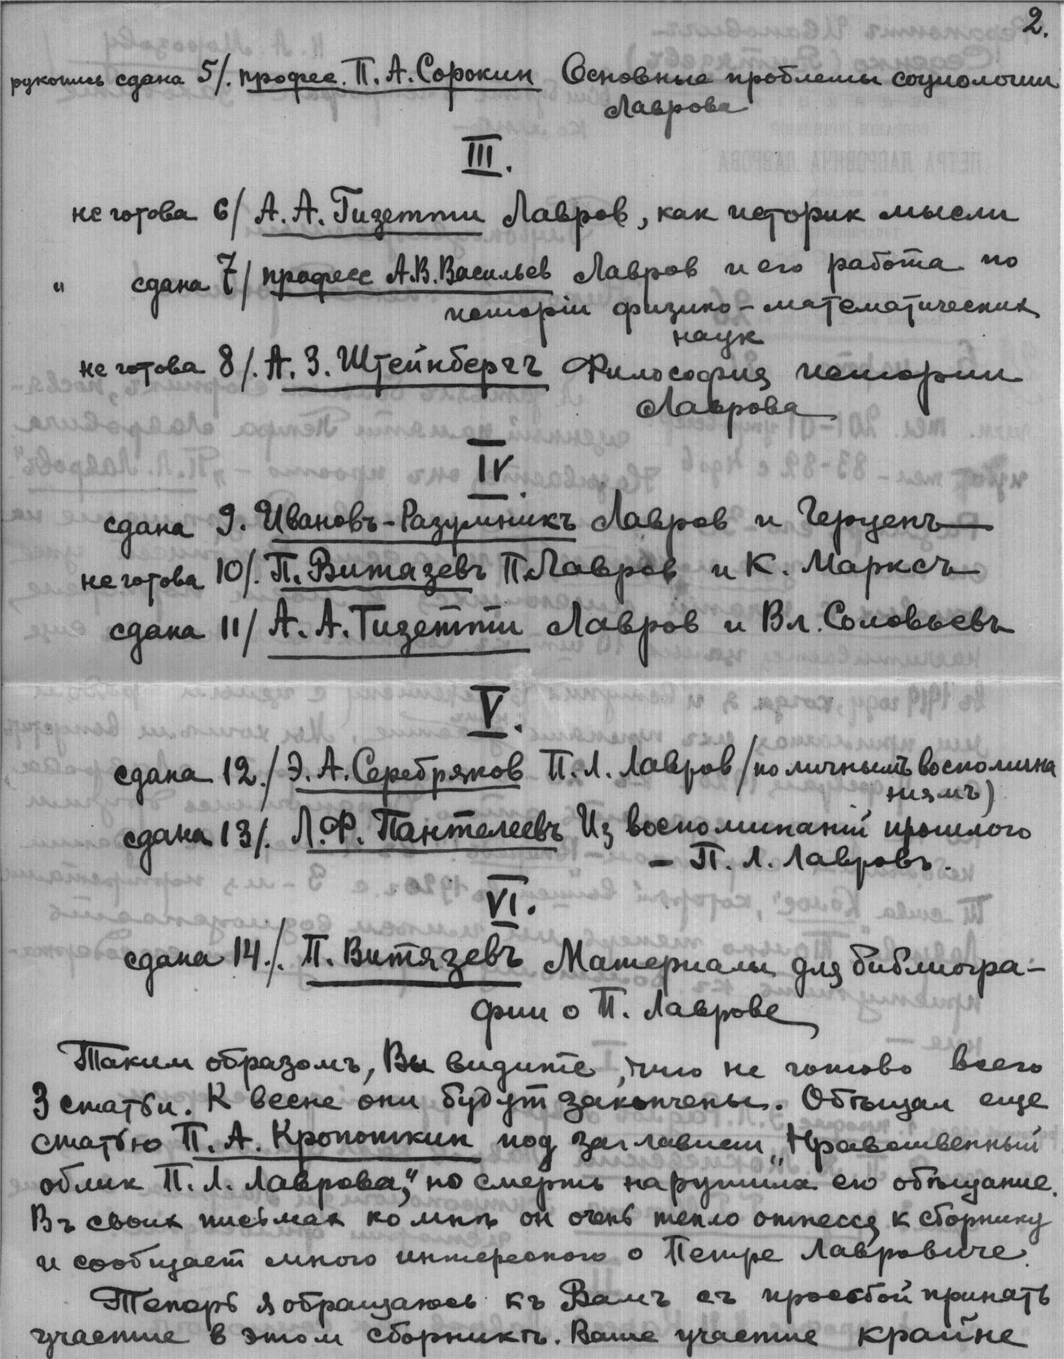 2.
рукопись сдана 5/. профес. П. А. Сорокин Основные проблемы социологии
Лаврова
III.
не готова 6/ А. А. Гизетти Лавров, как историк мысли
" сдана 7/ професс А.В. Васильев Лавров и его работа по
исторiи физико-математических
наук
не готова 8/. А. З. Штейнбергъ Философия истории
Лаврова
IV.
сдана 9. Ивановъ-Разумникъ Лавров и Герценъ
не готова 10/. П. Витязевъ П. Лавров и К. Марксъ
сдана 11/ А. А. Гизетти Лавров и Вл. Соловьевъ
V.
сдана 12./ Э. А. Серебряков П. Л. Лавров /по личнымъ воспомина
ниямъ)
сдана 13/. Л. Ф. Пантелеевъ Из воспоминанiй прошлого
– П. Л. Лавровъ.
VI.
сдана 14./. П. Витязевъ Материалы для библиогра-
фии о П. Лаврове
Таким образомъ, Вы видите, что не готово всего
3 статьи. К весне они будут закончены. Обѣщал еще
статью П. А. Кропоткин под заглавием „Нравственный
облик П. Л. Лаврова", но смерть нарушила его обѣщание.
Въ своих письмах ко мнѣ он очень тепло отнесся к сборнику
и сообщает много интересного о Петре Лавровиче.
Теперь я обращаюсь къ Вамъ съ просьбой принять
участие в этом сборникѣ. Ваше участие крайне